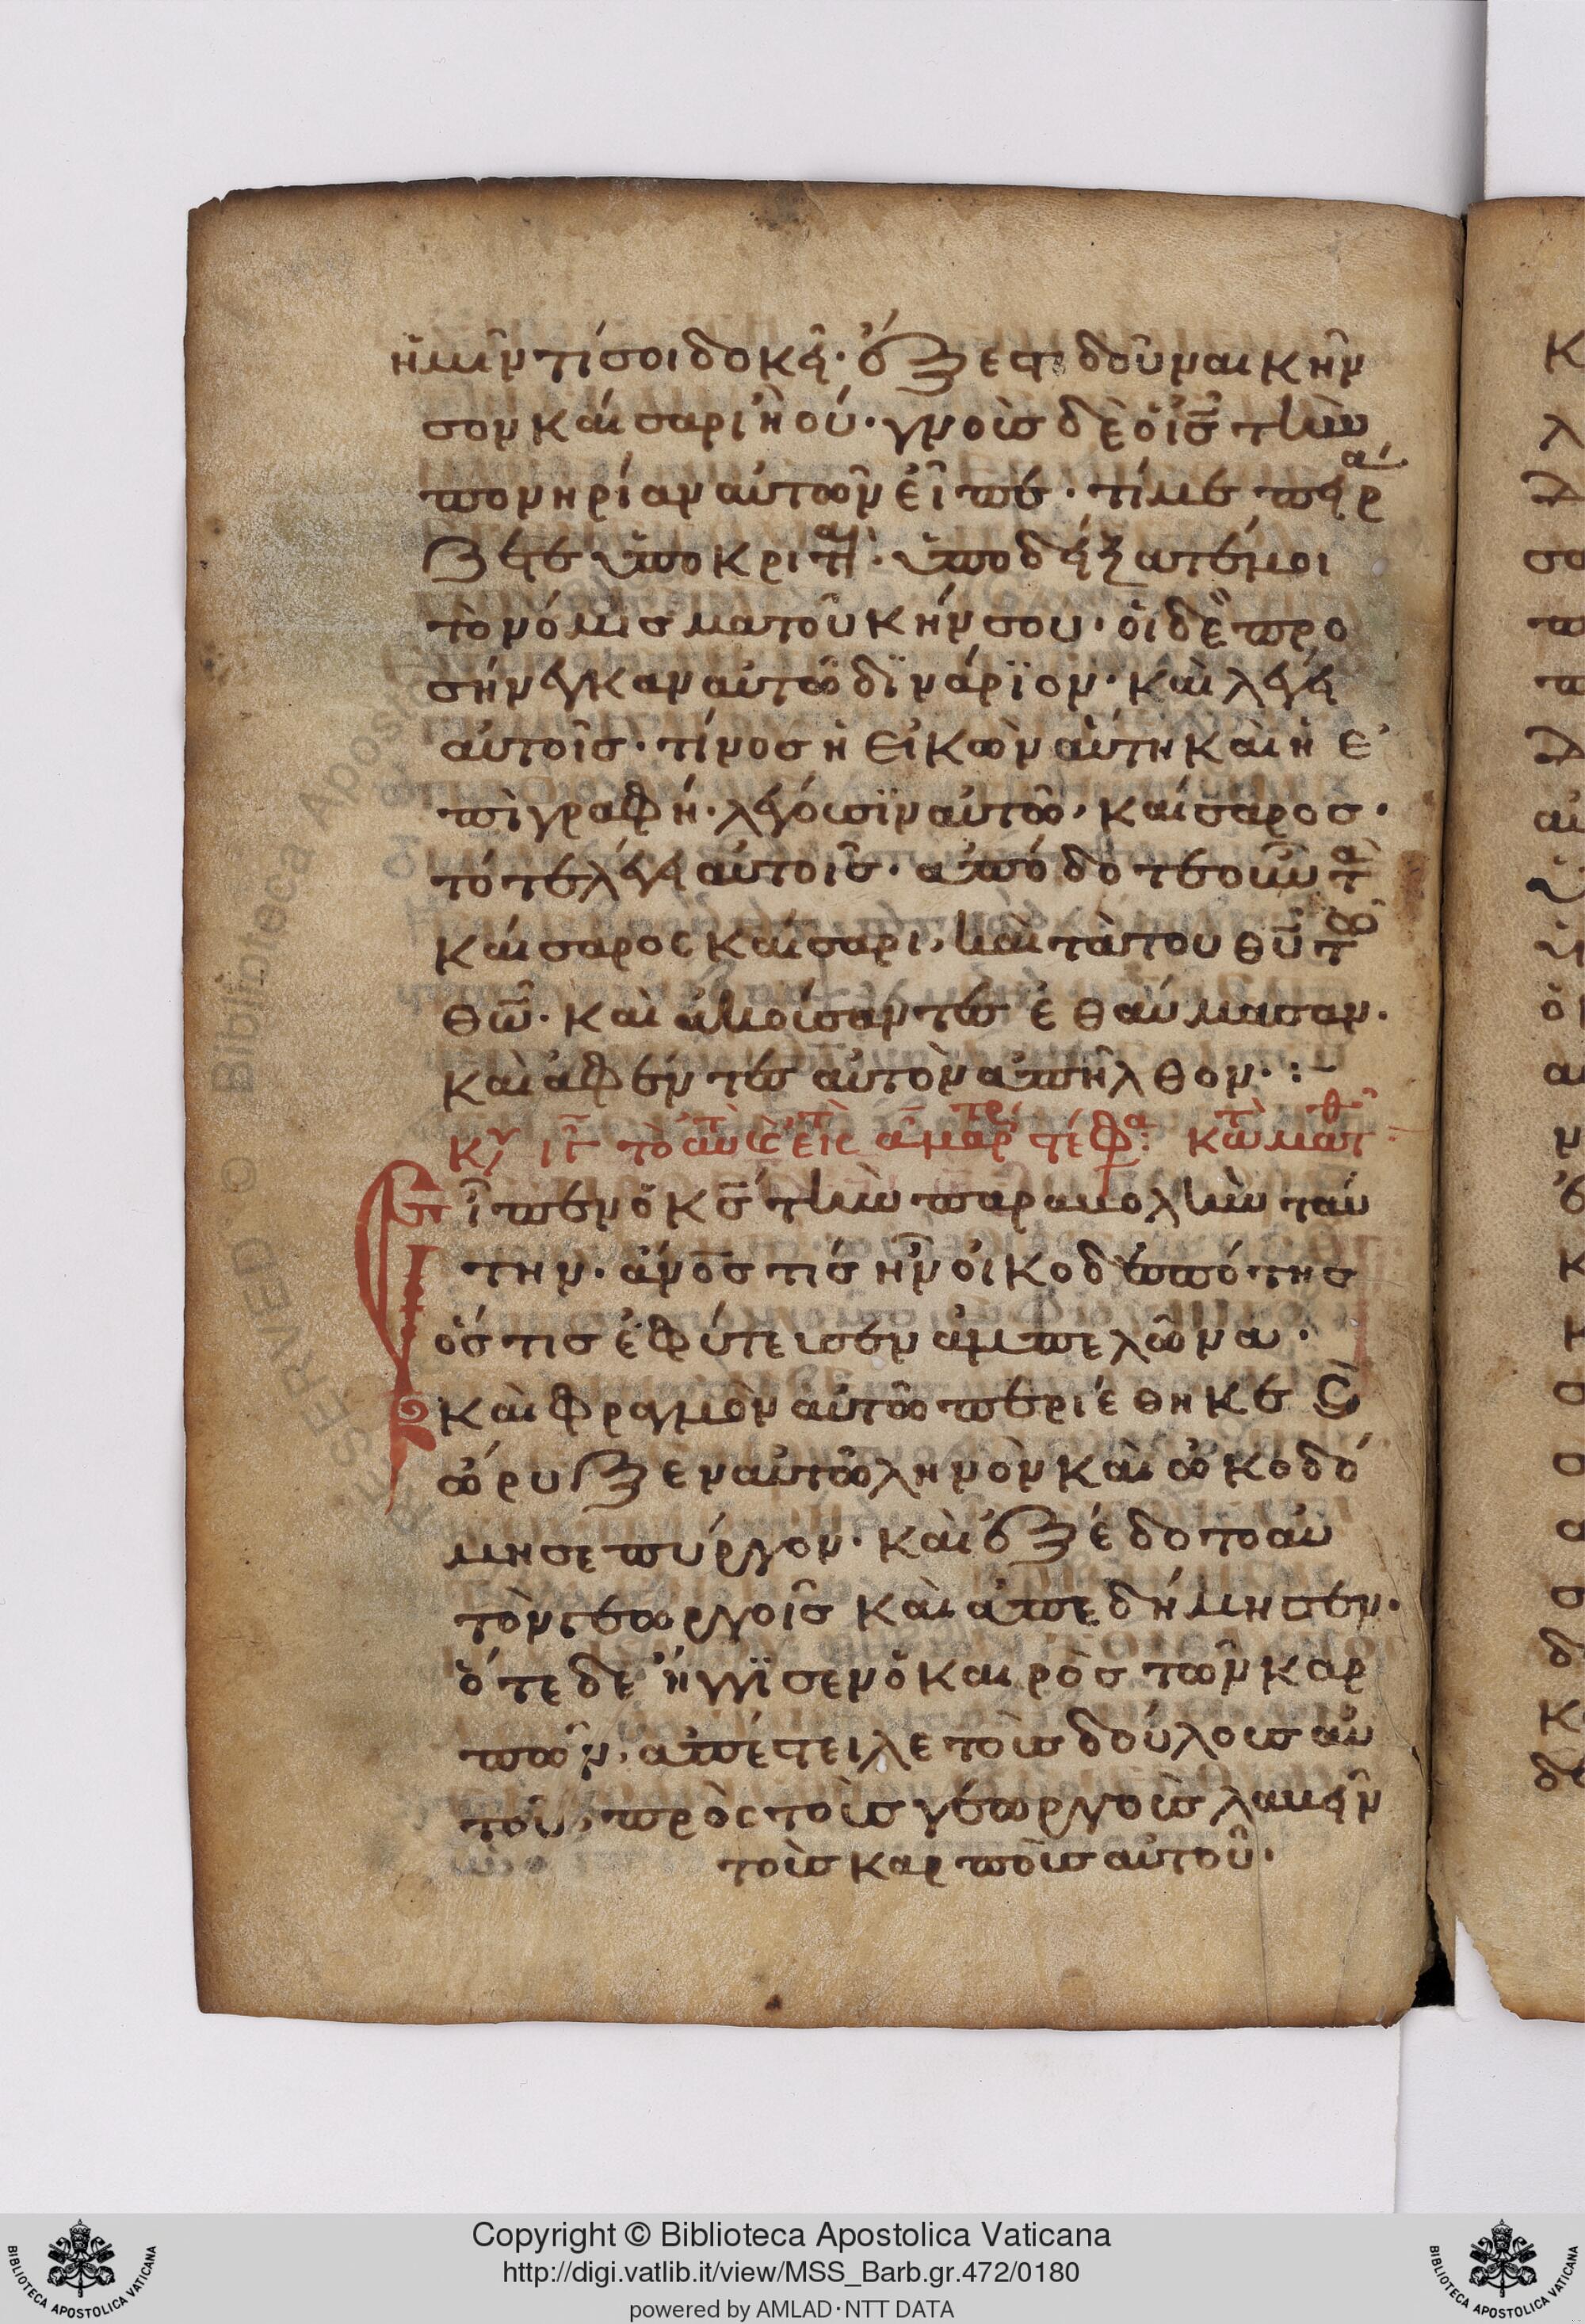 ἡμῖν τί σοι δοκεῖ· ἔξεστι δοῦναι κῆν
σον καίσαρι ἢ οὔ· γνοὺς δὲ ὁ ι̅ς̅ τὴν
πονηρίαν αὐτῶν εἶπε· τί με πειρά
ζετε ὑποκριταί· ὑποδείξατέ μοι
τὸ νόμισμα τοῦ κήνσου· οἱ δὲ προ
σήνεγκαν αὐτῶ δϊνάρϊον· καὶ λέγει
αὐτοῖς· τίνος ἡ εἰκὼν αὕτη καὶ ἡ ἐ
πιγραφή· λέγουσϊν αὐτῶ· καίσαρος·
τότε λέγει αὐτοῖς· ἀπόδοτε οὖν τὰ
καίσαρος καίσαρι, καὶ τὰ του θ̅υ̅ τῶ
θ̅ω̅· καὶ ἀκούσαντες ἐθαύμασαν·
καὶ ἀφέντες αὐτὸν ἀπῆλθον· :
Εἶπεν ὁ κ̅ς̅ τὴν παραβολὴν ταύ
την· ἄν̅ο̅ς τίς ἦν οἰκοδεσπότης
ὅστις ἐφύτευσεν ἀμπελῶνα·
καὶ φραγμὸν αὐτῶ περιέθηκε καὶ
ὤρυξεν αὐτῶ ληνὸν καὶ ὠκοδό
μησε πύργον· καὶ ἐξέδοτο αὐ
τὸν γεωργοῖς καὶ ἀπεδήμησεν·
ὅτε δε ἤγγϊσεν ὁ καιρὸς τῶν καρ
πῶν, ἀπέστειλε τοὺς δούλους αὐ
τοῦ, πρὸς τοὺς γεωργοὺς λαβεῖν
τοὺς καρποὺς αὐτοῦ·
Copyright © Biblioteca Apostolica Vaticana
http://digi.vatlib.it/view/MSS_Barb.gr.472/0180
powered by AMLAD·NTT DATA